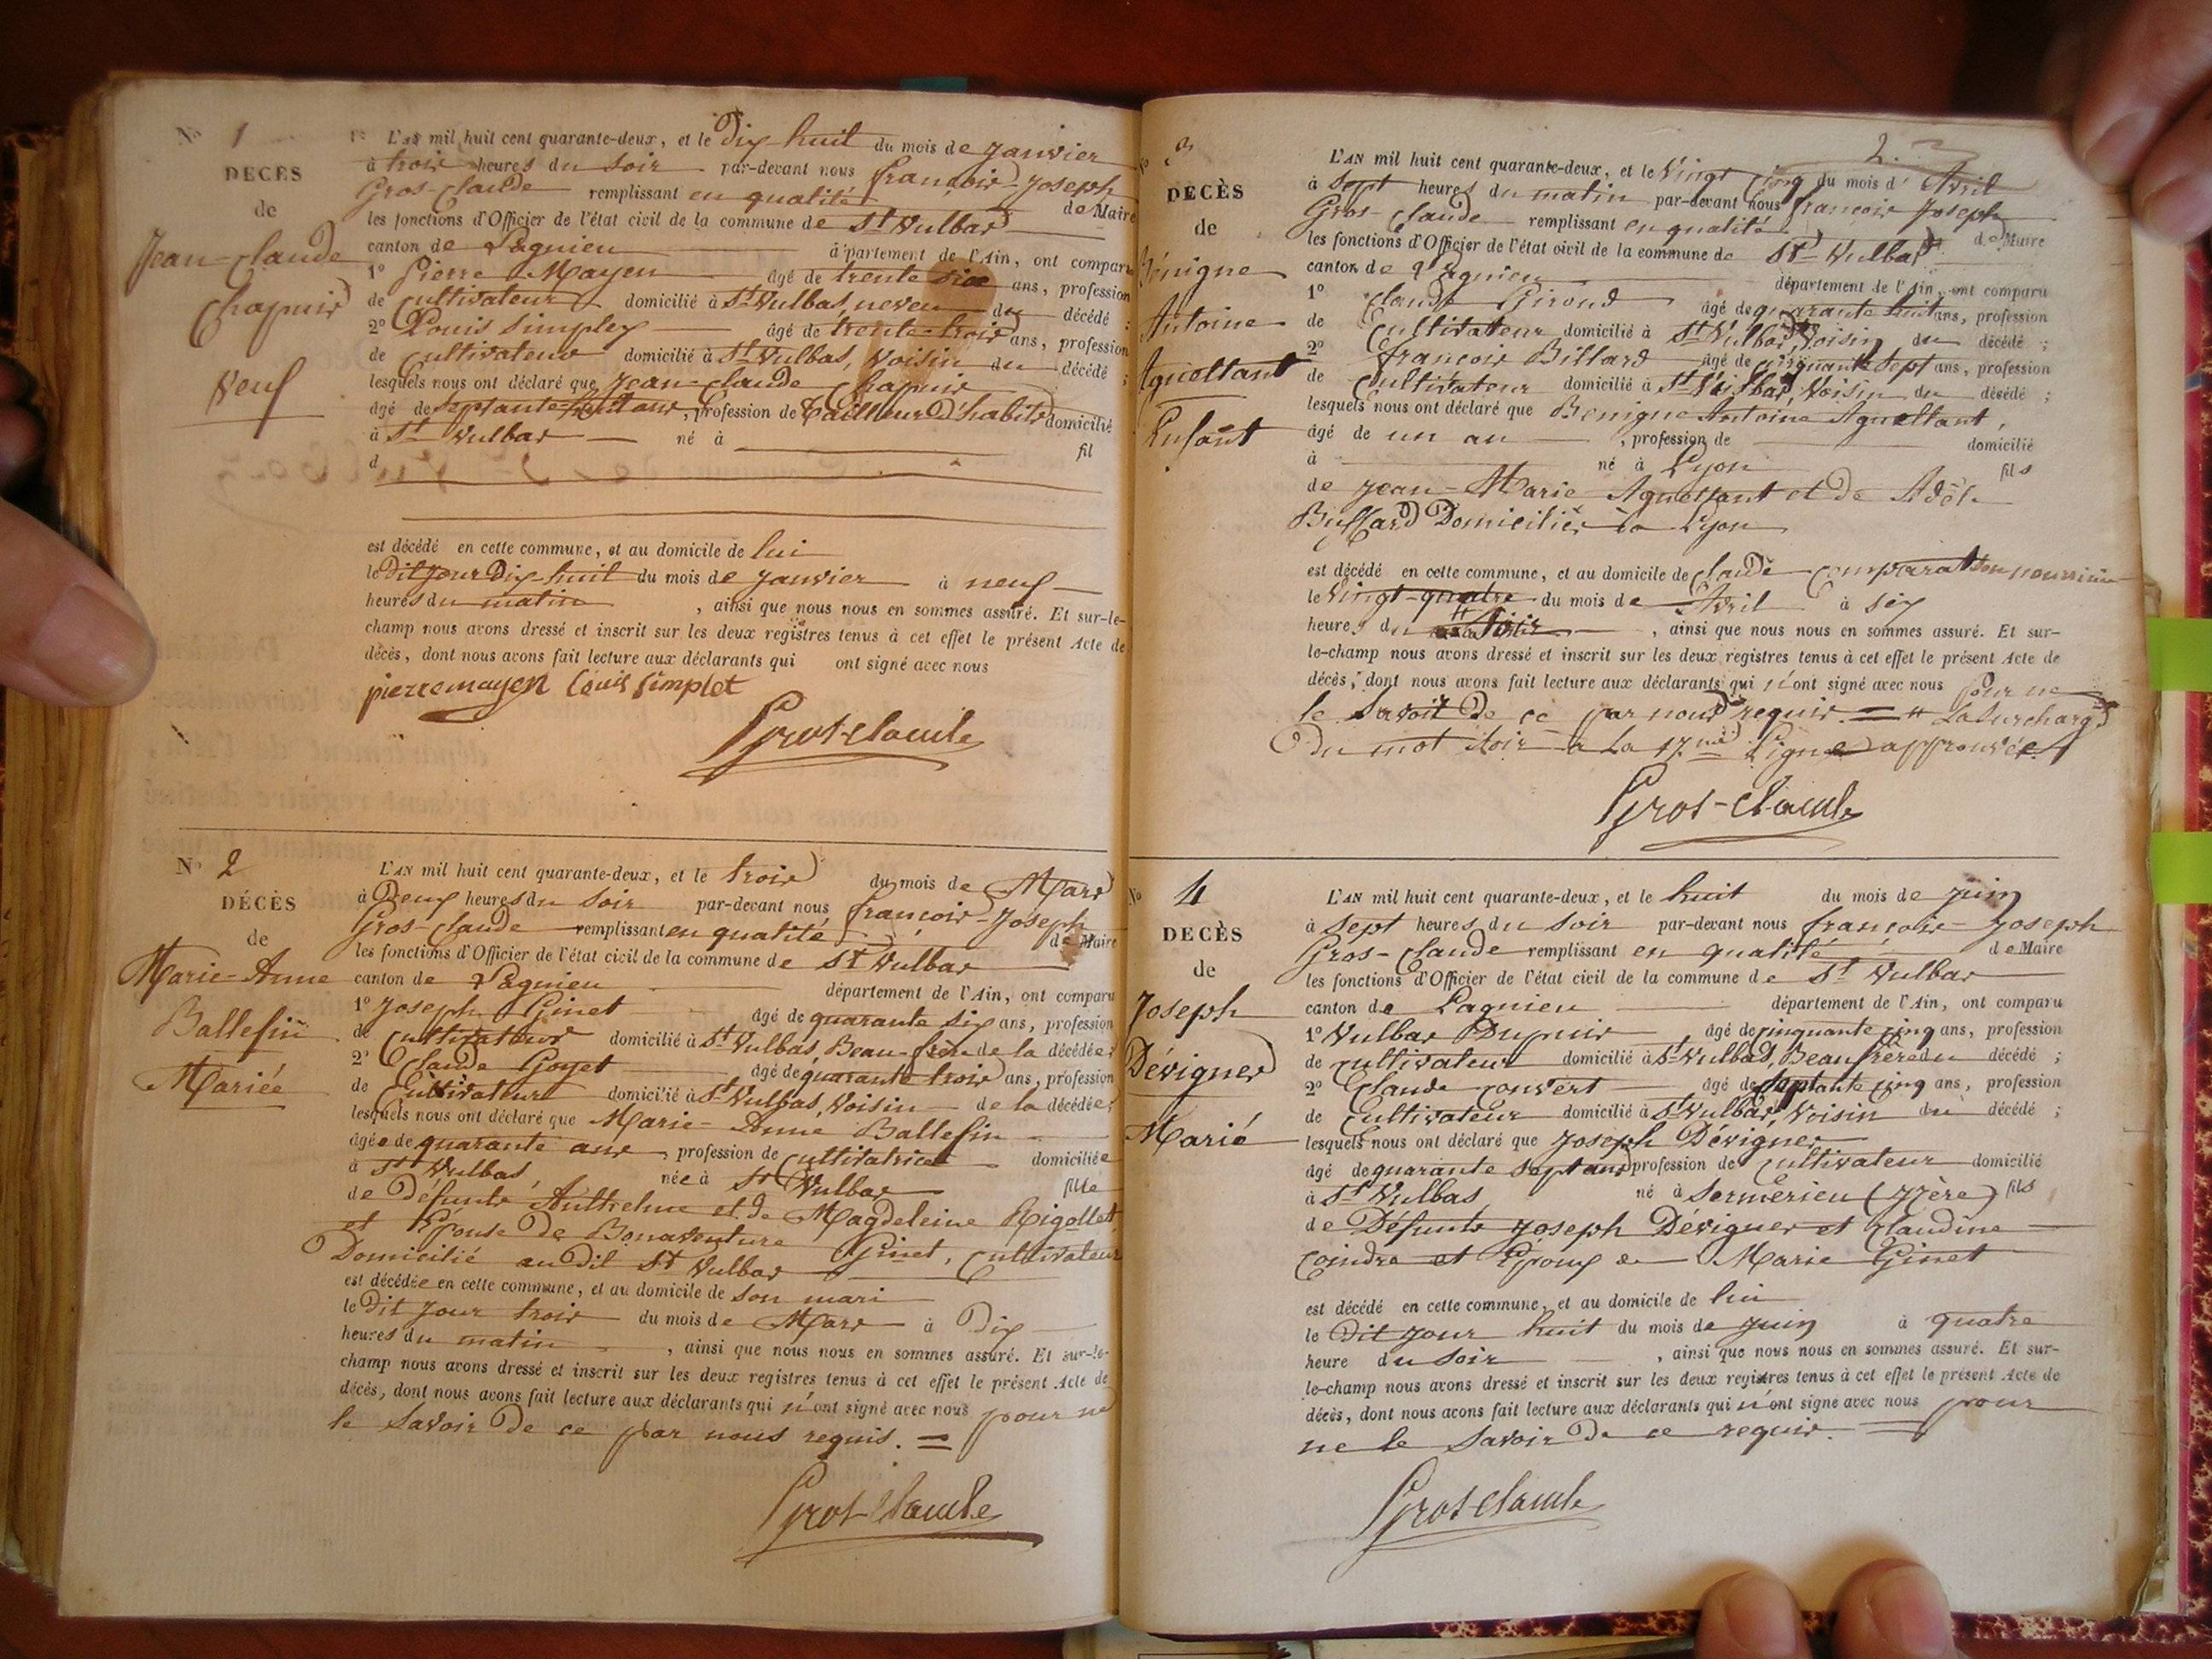 N° 1
DECÈS
de
Jean-Claude
Chapuis
Veuf
L'AN mil huit cent quarante-deux, et le Dix huit du mois de Janvier
à trois heures du soir par-devant nous françois-Joseph
Gros-Claude remplissant en qualité de Maire
les fonctions d'Officier de l'état civil de la commune de St Vulbas
canton de Lagnieu département de l'Ain, ont comparu
1° Pierre Mayen âgé de trente six ans, profession
de cultivateur domicilié à St Vulbas, neveu du décédé ;
2° Louis Simplex âgé de trente-trois ans, profession
de cultivateur domicilié à St Vulbas, Voisin du décédé ;
lesquels nous ont déclaré que Jean-Claude Chapuis
âgé de septante huit ans, profession de Tailleur D'habits domicilié
à St Vulbas né à fil
d
est décédé en cette commune, et au domicile de lui
le Dit Jour Dix-huit du mois de Janvier à neuf
heures du matin , ainsi que nous nous en sommes assuré. Et sur-le-
champ nous avons dressé et inscrit sur les deux registres tenus à cet effet le présent Acte de
décès, dont nous avons fait lecture aux déclarants qui ont signé avec nous
pierre mayen Louis Simplet
Gros-Claude
N° 2
DÉCÈS
de
Marie-Anne
Ballefin
Mariée
L'AN mil huit cent quarante-deux, et le trois du mois de Mars
à Deux heures du soir par-devant nous françois-Joseph
Gros-Claude remplissant en qualité de Maire
les fonctions d'Officier de l'état civil de la commune de St Vulbas
canton de Lagnieu département de l'Ain, ont comparu
1° Joseph Ginet âgé de quarante six ans, profession
de cultivateur domicilié à St Vulbas, Beau-frère de la décédée ;
2° Claude Goyet âgé de quarante trois ans, profession
de Cultivateur domicilié à St Vulbas, Voisin de la décédée ;
lesquels nous ont déclaré que Marie-Anne Ballefin
âgée de quarante ans, profession de Cultivatrice domiciliée
à St Vulbas, née à St Vulbas fille
de Défunts Anthelme et de Magdeleine Rigollet
et Epouse de Bonaventure Ginet, Cultivateur
Domicilié au dit St Vulbas
est décédée en cette commune, et au domicile de son mari
le Dit Jour trois du mois de Mars à Dix
heures du matin , ainsi que nous nous en sommes assuré. Et sur-le-
champ nous avons dressé et inscrit sur les deux registres tenus à cet effet le présent Acte de
décès, dont nous avons fait lecture aux déclarants qui n'ont signé avec nous pour ne
le Savoir De ce par nous requis. =
Gros-Claude
2.
N° 3
DÉCÈS
de
Bénigne
Antoine
Agnettant
Enfant
L'AN mil huit cent quarante-deux, et le Vingt Cinq du mois d' Avril
à Sept heures du matin par-devant nous françois Joseph
Gros-Claude remplissant en qualité de Maire
les fonctions d'Officier de l'état civil de la commune de St Vulbas
canton de Lagnieu département de l'Ain, ont comparu
1° Claude Giroud âgé de quarante huit ans, profession
de Cultivateur domicilié à St Vulbas, Voisin du décédé ;
2° françois Billard âgé de cinquante sept ans, profession
de Cultivateur domicilié à St Vulbas, Voisin du décédé ;
lesquels nous ont déclaré que Benigne Antoine Agnettant,
âgé de un an , profession de domicilié
à né à Lyon fils
de Jean-Marie Agnettant et de Adèle
Domiciliés à Lyon
est décédé en cette commune, et au domicile de Claude Comparat Son nourricier
le Vingt-quatre du mois de Avril à six
heures du Soir , ainsi que nous nous en sommes assuré. Et sur-
le-champ nous avons dressé et inscrit sur les deux registres tenus à cet effet le présent Acte de
décès, dont nous avons fait lecture aux déclarants qui n'ont signé avec nous pour ne
le Savoir De ce par nous requis. = # La Surcharge
Du mot Soir à La 17me Ligne approuvée
Gros-Claude
N° 4
DECÈS
de
Joseph
Dévigner
Marié
L'AN mil huit cent quarante-deux, et le huit du mois de Juin
à sept heures du soir par-devant nous françois-Joseph
Gros-Claude remplissant en qualité de Maire
les fonctions d'Officier de l'état civil de la commune de St Vulbas
canton de Lagnieu département de l'Ain, ont comparu
1° Vulbas Dupuis âgé de cinquante cinq ans, profession
de cultivateur domicilié à St Vulbas, Beaufrère du décédé ;
2° Claude Convert âgé de Septante cinq ans, profession
de Cultivateur domicilié à St Vulbas, Voisin du décédé ;
lesquels nous ont déclaré que Joseph Dévigner
âgé de quarante sept ans profession de Cultivateur domicilié
à St Vulbas né à Sermérieu (Isère) fils
de Défunts Joseph Dévigner et Claudine
Coindre et Epoux de Marie Ginet
est décédé en cette commune, et au domicile de lui
le Dit Jour huit du mois de Juin à quatre
heure du Soir , ainsi que nous nous en sommes assuré. Et sur-
le-champ nous avons dressé et inscrit sur les deux registres tenus à cet effet le présent Acte de
décès, dont nous avons fait lecture aux déclarants qui n'ont signé avec nous pour
ne le Savoir De ce requis. =
Gros-Claude